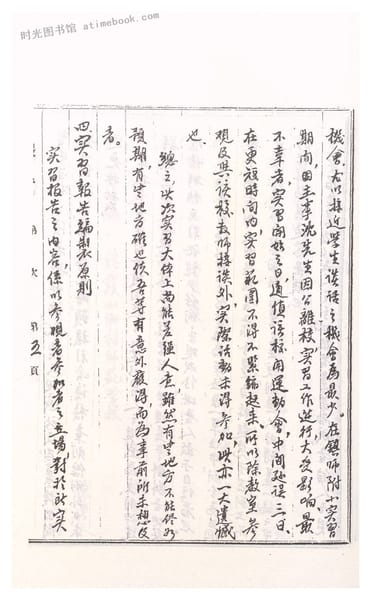 时光图书馆 atimebook.com
機會，尤以接近學生談話之機會為最少。在鎮師附小實習
期間，因主事沈先生因公離校，實習工作進行大受影响，最
不幸者，實習開始之日適值該校開運動會，中間赴误三日，
在更短時間内，實習範圍不得不緊縮起来。所以除教室参
观及與該校教师接谈外，實際活動未得参加，此亦一大遺憾
也。
總之，此次实習大体上尚能差强人意，雖然有些地方不能修如
预期，有些地方確也使吾等有意外獲得，而為事前所未想及
者。
四、实習報告編製原則
实習报告之内容，係以参观者参加者之立場，對於所实
目次 第五頁